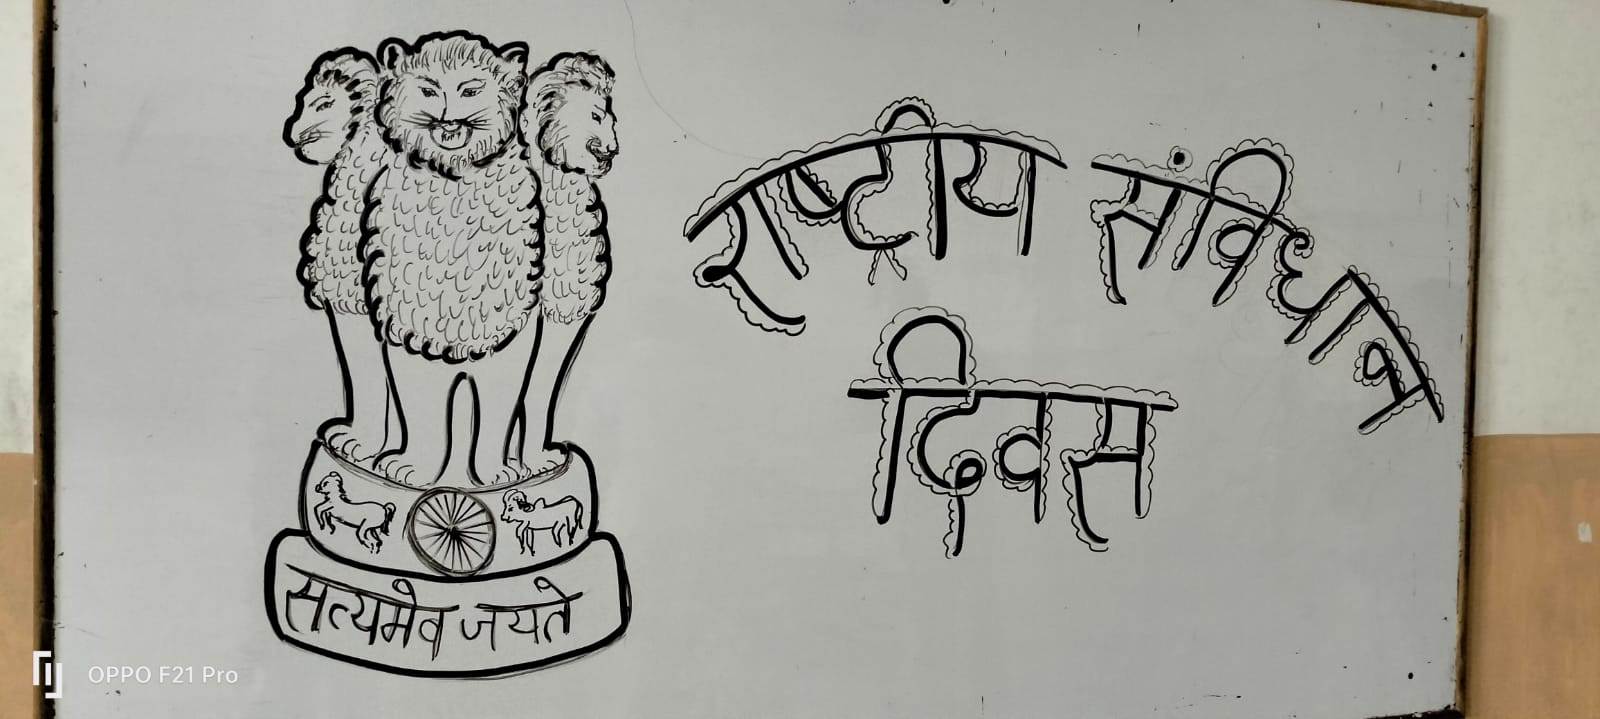 राष्ट्रीय संविधान
दिवस
सत्यमेव जयते
OPPO F21 Pro